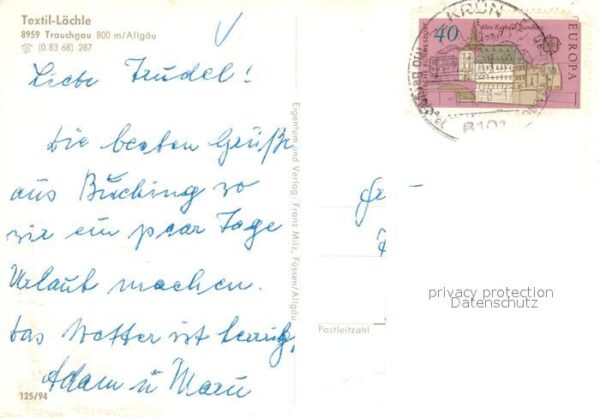 Textil-Löchle
8959 Trauchgau 800 m/Allgäu
☏ (0.83 68) 287
Liebe Trudel!
Die besten Grüße
aus Buching wo
wir ein paar Tage
Urlaub machen.
Das Wetter ist
Adam u
125/94
Eigentum und Verlag: Franz Milz, Füssen/Allgäu
Postleitzahl
KRÜN
40
Altes Rathaus Bamberg
EUROPA
8101
privacy protection
Datenschutz